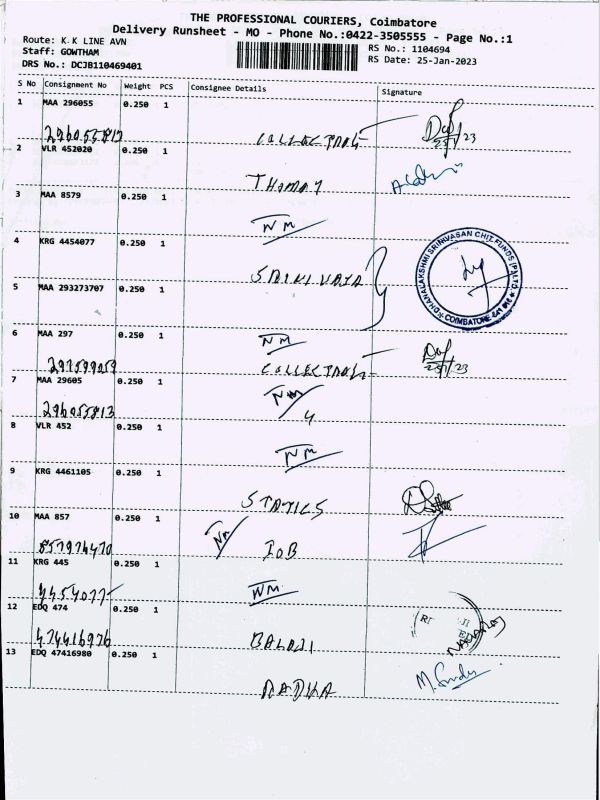 THE PROFESSIONAL COURIERS, Coimbatore
Delivery Runsheet - MO - Phone No.:0422-3505555 - Page No.:1
Route: K.K LINE AVN
Staff: GOWTHAM
DRS No.: DCJB110469401
RS No.: 1104694
RS Date: 25-Jan-2023
S No Consignment No Weight PCS Consignee Details Signature
1 MAA 296055 0.250 1
296055813 COLLECTRATE
25/1/23
2 VLR 452020 0.250 1
THOMAY
3 MAA 8579 0.250 1
NM
4 KRG 4454077 0.250 1
SRINIVASA
DHANALAKSHMI SRINIVASAN CHIT FUNDS (P) LTD.
COIMBATORE-641
5 MAA 293273707 0.250 1
NM
6 MAA 297 0.250 1
297599059 COLLECTRATE
25/1/23
7 MAA 29605 0.250 1
296055813 NM
4
8 VLR 452 0.250 1
NM
9 KRG 4461105 0.250 1
STATICS
10 MAA 857 0.250 1
857974470 NM IOB
11 KRG 445 0.250 1
4454077 NM
12 EDQ 474 0.250 1
474416976 BALAJI
13 EDQ 47416980 0.250 1
RADHA